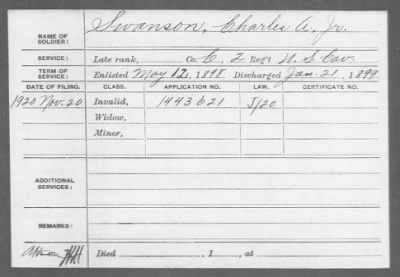 NAME OF SOLDIER: Swanson, Charles A., Jr.
SERVICE: Late rank, Co. E, 2 Reg't U. S. Cav.
TERM OF SERVICE: Enlisted May 12, 1898, Discharged Jan. 21, 1899
DATE OF FILING. CLASS. APPLICATION NO. LAW. CERTIFICATE NO.
1920 Nov. 20 Invalid, 1443621 J/20
Widow,
Minor,
ADDITIONAL SERVICES:
REMARKS:
Died , 1 , at